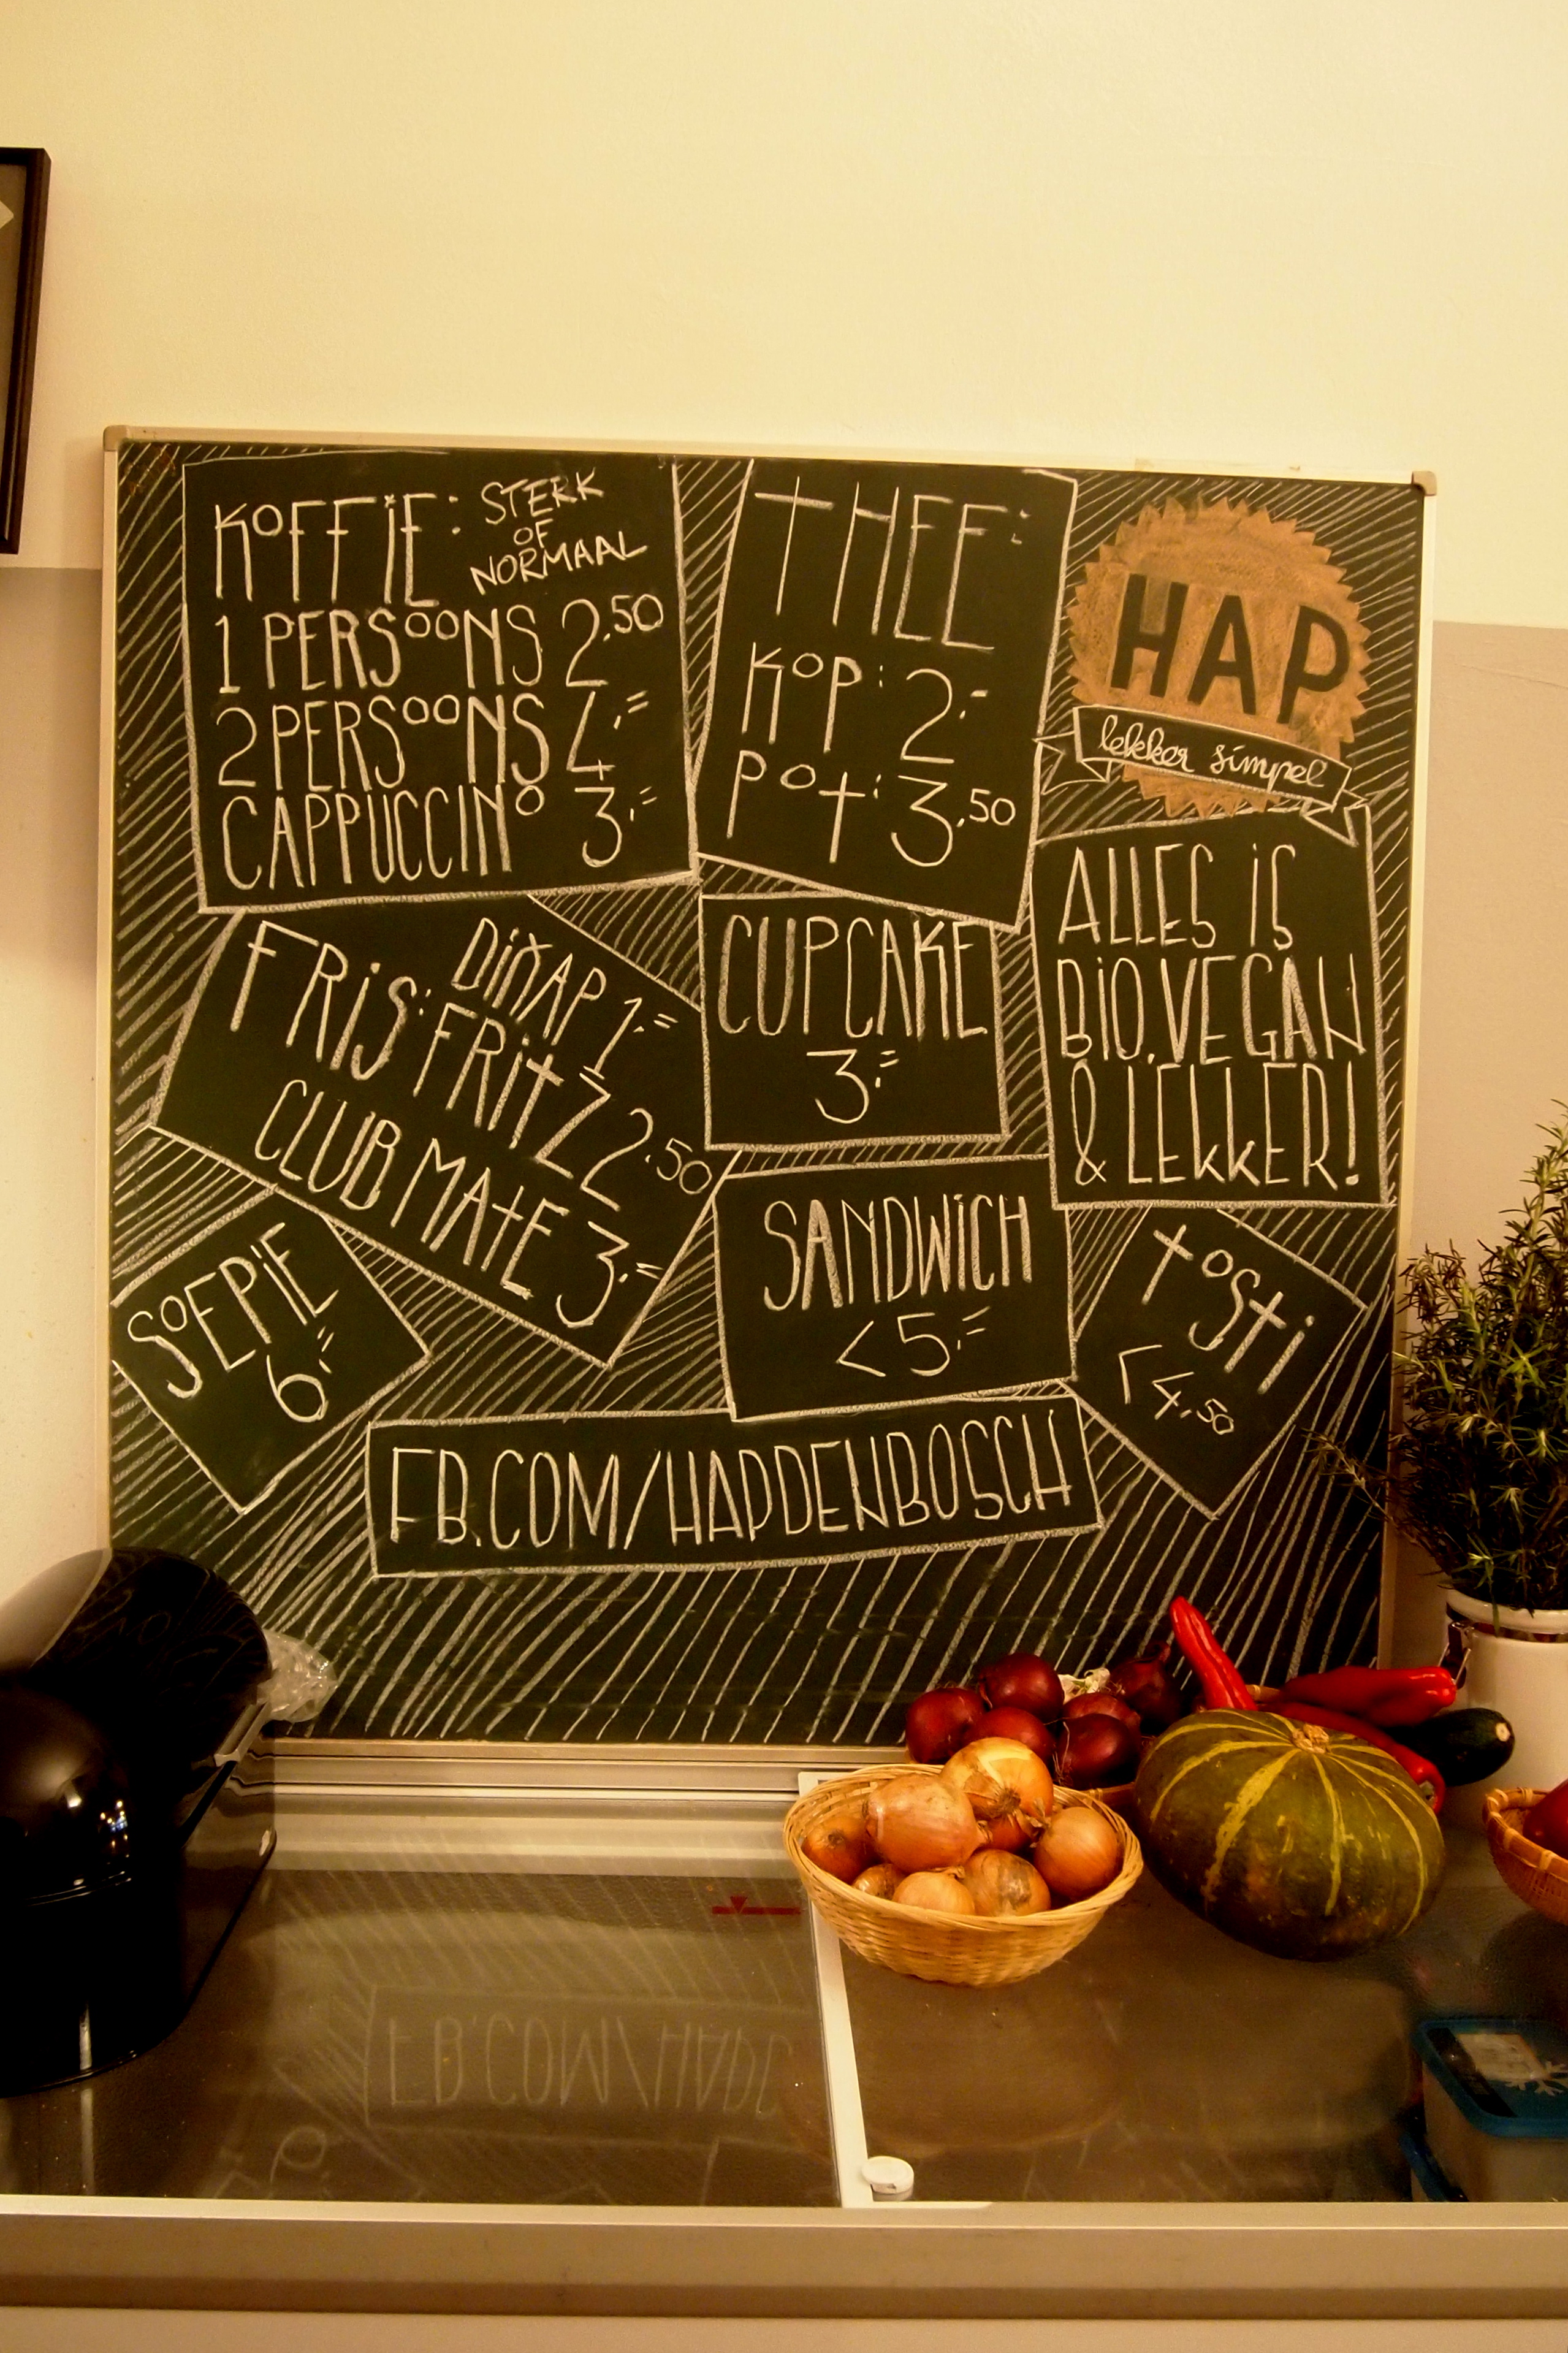 KOFFIE: STERK OF NORMAAL
1 PERSOONS 2.50
2 PERSOONS 4.=
CAPPUCCINO 3.=
THEE:
KOP: 2.-
POT: 3.50
HAP
lekker simpel
ALLES IS
BIO, VEGAN
& LEKKER!
DIXAP 1.=
FRIS: FRITZ 2.50
CLUB MATE 3.=
CUPCAKE
3.=
SOEPIE
6.=
SANDWICH
<5.=
TOSTI
<4.50
FB.COM/HAPDENBOSCH